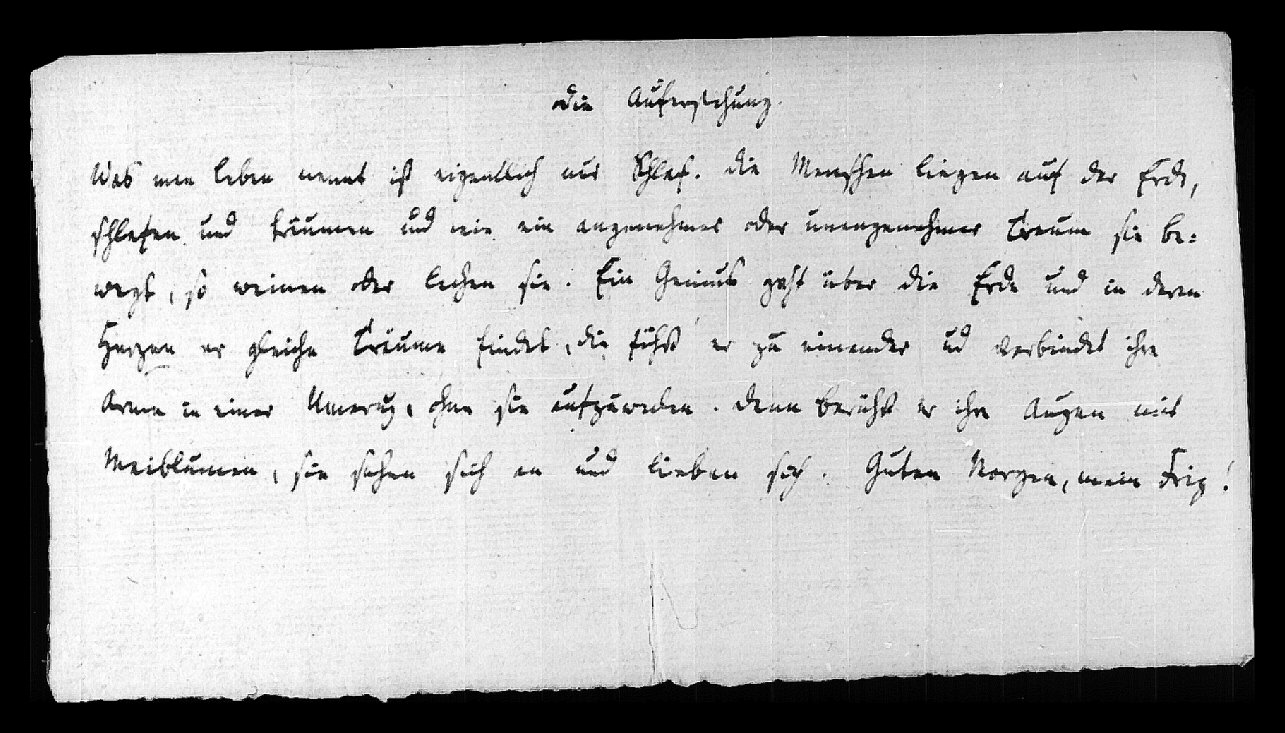 Die Auferstehung.
Was man Leben nennt ist eigentlich nur Schlaf. Die Menschen liegen auf der Erde,
schlafen und träumen und wie ein angenehmer oder unangenehmer Traum sie be=
wegt, so weinen oder lachen sie. Ein Genius geht über die Erde und in deren
Herzen er gleiche Träume findet, die führt er zu einander ud verbindet ihre
Arme in einer Umarug, ohne sie aufzuweken. Dann berührt er ihre Augen mit
Maiblumen, sie sehen sich an und lieben sich. Guten Morgen, mein Friz!